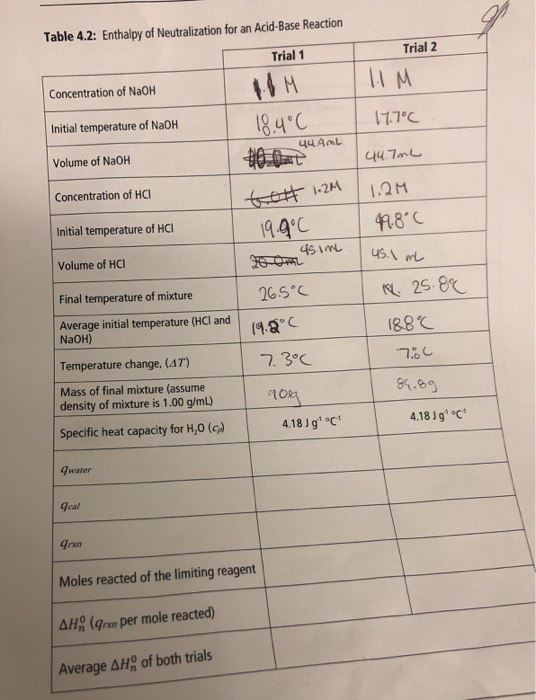 Table 4.2: Enthalpy of Neutralization for an Acid-Base Reaction
Trial 1 Trial 2
Concentration of NaOH 1.1 M 1.1 M
Initial temperature of NaOH 18.4°C 17.7°C
Volume of NaOH 44.9mL 44.7mL
Concentration of HCl 1.2M 1.2M
Initial temperature of HCl 19.9°C 19.8°C
Volume of HCl 45.1mL 45.1 mL
Final temperature of mixture 26.5°C 25.8°C
Average initial temperature (HCl and
NaOH) 19.2°C 18.8°C
Temperature change, (ΔT) 7.3°C
Mass of final mixture (assume
density of mixture is 1.00 g/mL) 90g 89.8g
Specific heat capacity for H₂O (cₚ) 4.18 J g⁻¹ °C⁻¹ 4.18 J g⁻¹ °C⁻¹
qwater
qcal
qrxn
Moles reacted of the limiting reagent
ΔH°n (qrxn per mole reacted)
Average ΔH°n of both trials